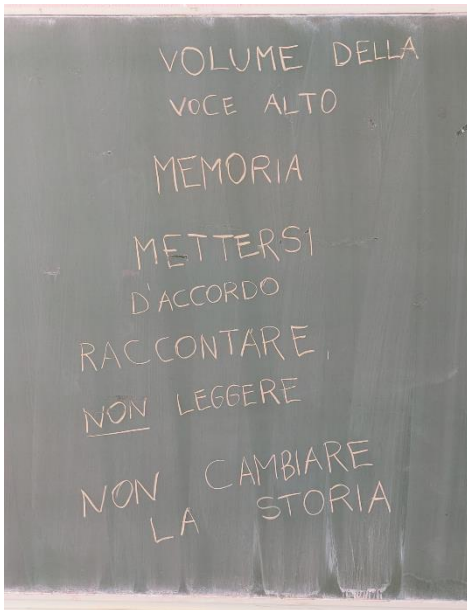 VOLUME DELLA
VOCE ALTO
MEMORIA
METTERSI
D'ACCORDO
RACCONTARE,
NON LEGGERE
NON CAMBIARE
LA STORIA